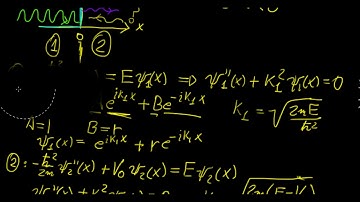 x
① 0 ②
= Eψ₁(x) ⇒ ψ₁''(x) + K₁²ψ₁(x) = 0
e^{iK₁x} + Be^{-iK₁x} K₁ = √(2mE/ħ²)
A=1 B=r
ψ₁(x) = e^{iK₁x} + re^{-iK₁x}
②: -ħ²/2m ψ₂''(x) + V₀ψ₂(x) = Eψ₂(x)